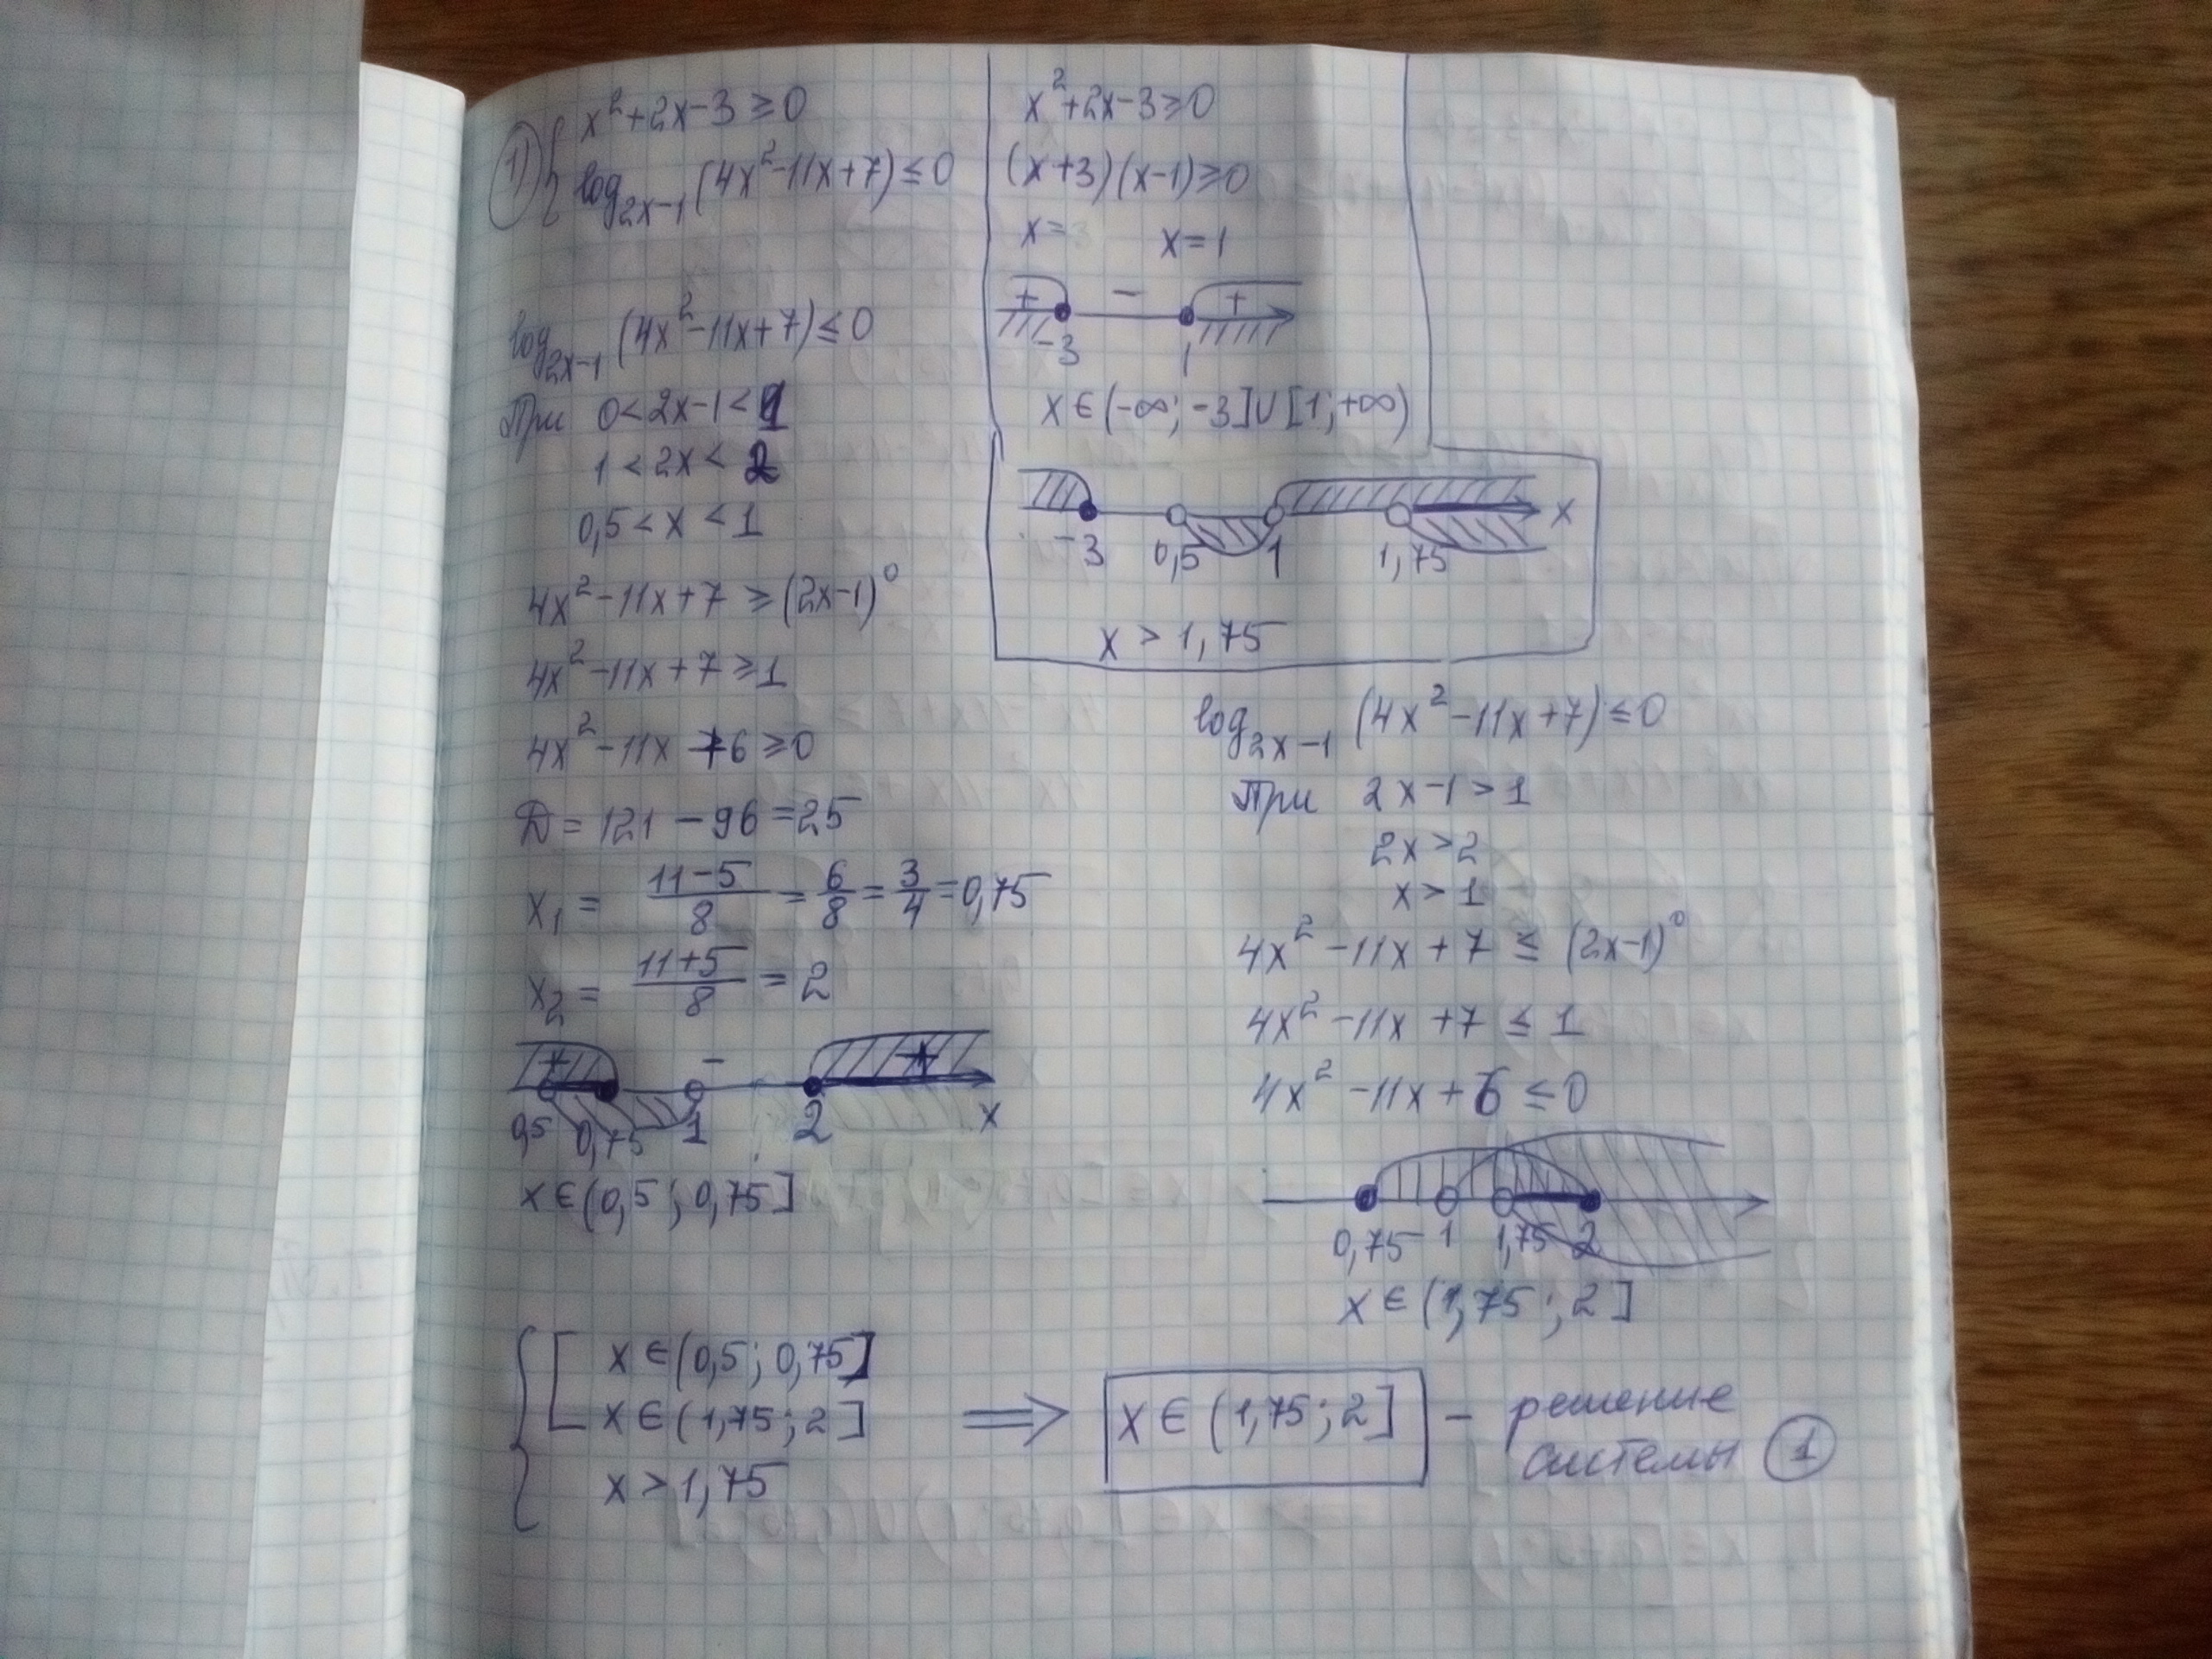 1) { x²+2x-3≥0
log₂ₓ₋₁(4x²-11x+7)≤0
log₂ₓ₋₁(4x²-11x+7)≤0
При 0<2x-1<1
1<2x<2
0,5<x<1
4x²-11x+7≥(2x-1)⁰
4x²-11x+7≥1
4x²-11x+6≥0
Д=121-96=25
x₁=(11-5)/8=6/8=3/4=0,75
x₂=(11+5)/8=2
+ - +
0,5 0,75 1 2 x
x∈(0,5;0,75]
x²+2x-3≥0
(x+3)(x-1)≥0
x= x=1
+ - +
-3 1
x∈(-∞;-3]∪[1;+∞)
x
-3 0,5 1 1,75
x>1,75
log₂ₓ₋₁(4x²-11x+7)≤0
При 2x-1>1
2x>2
x>1
4x²-11x+7≤(2x-1)⁰
4x²-11x+7≤1
4x²-11x+6≤0
0,75 1 1,75 2
x∈(1,75;2]
{ [ x∈(0,5;0,75]
x∈(1,75;2]
x>1,75
⟹ x∈(1,75;2] - решение
системы 1